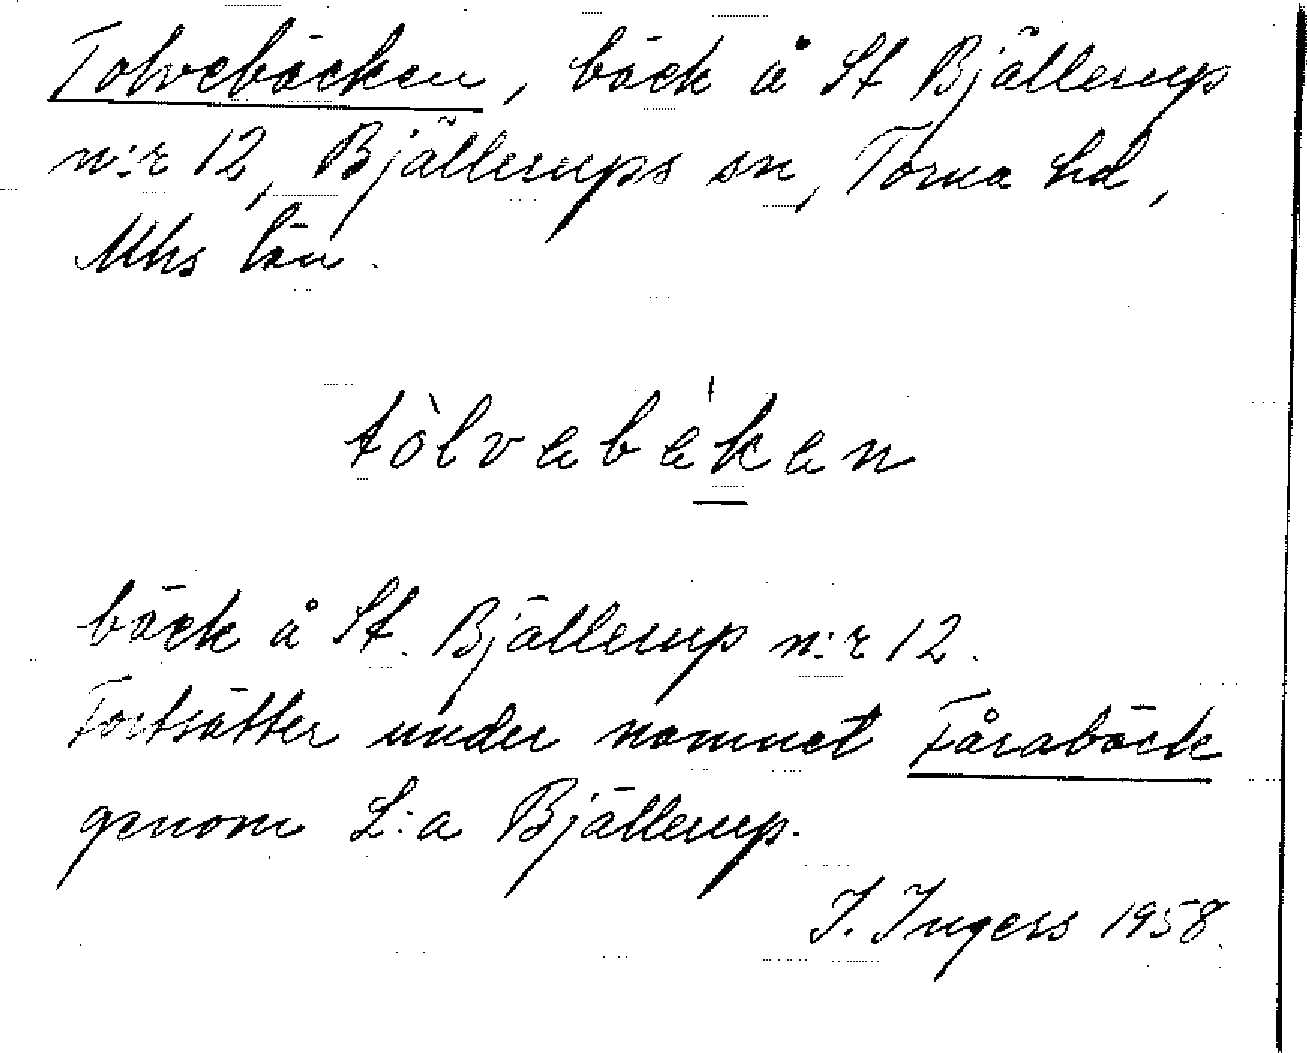 Tolvebäcken, bäck å St Bjällerup
n:r 12, Bjällerups sn, Torna hd,
Mhs län.
tòlvebéken
bäck å St. Bjällerup n:r 12.
Fortsätter under namnet Fårabäck
genom L:a Bjällerup.
I. Ingers 1958.